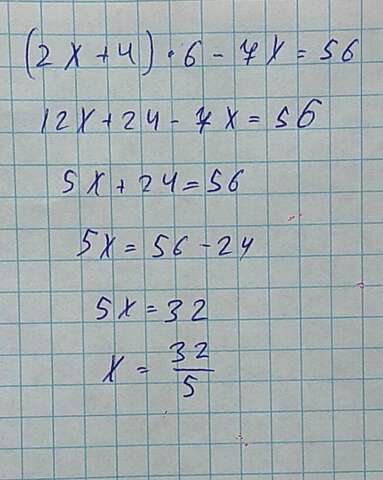 (2x+4)·6-7x=56
12x+24-7x=56
5x+24=56
5x=56-24
5x=32
x=32/5